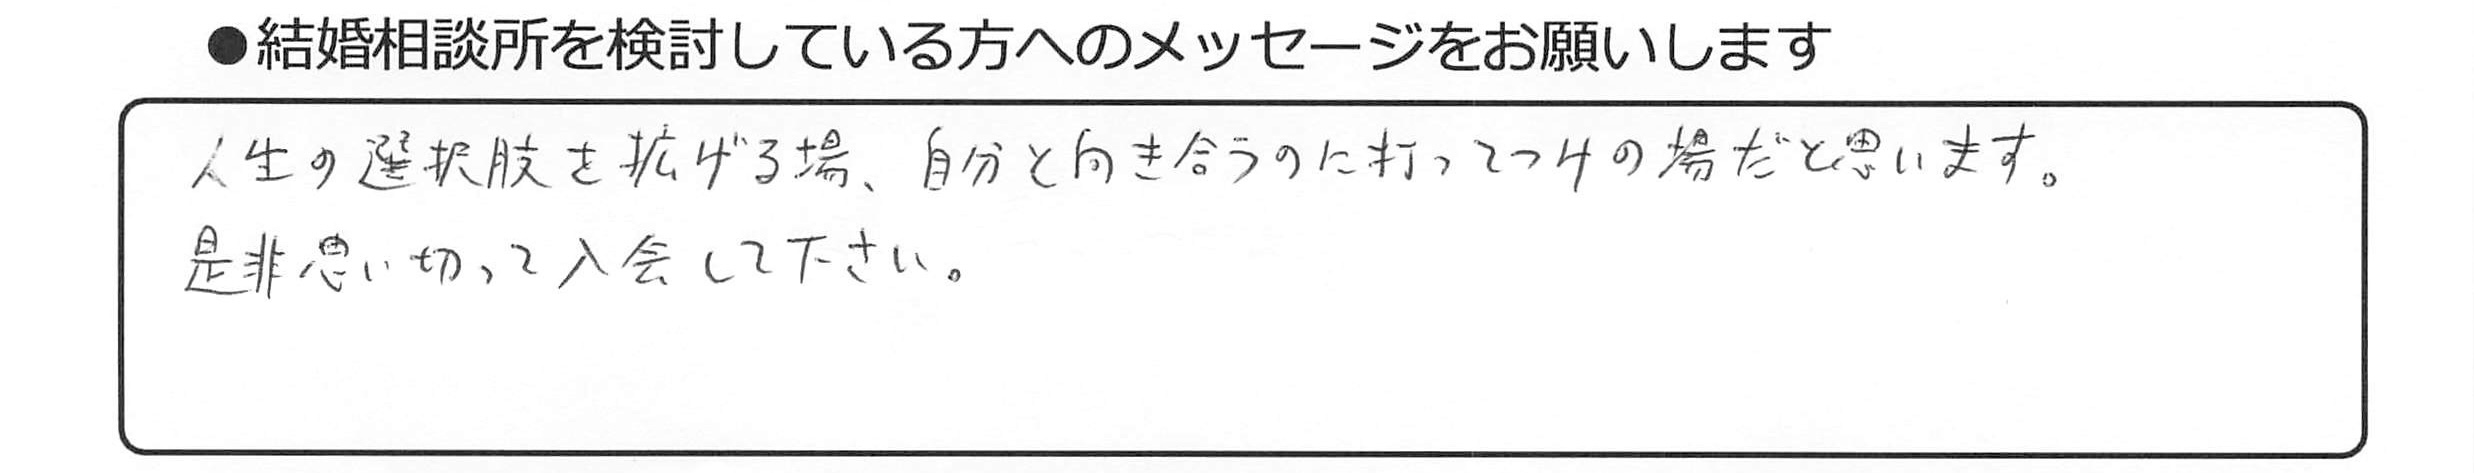 ●結婚相談所を検討している方へのメッセージをお願いします
人生の選択肢を拡げる場、自分と向き合うのに打ってつけの場だと思います。
是非思い切って入会して下さい。